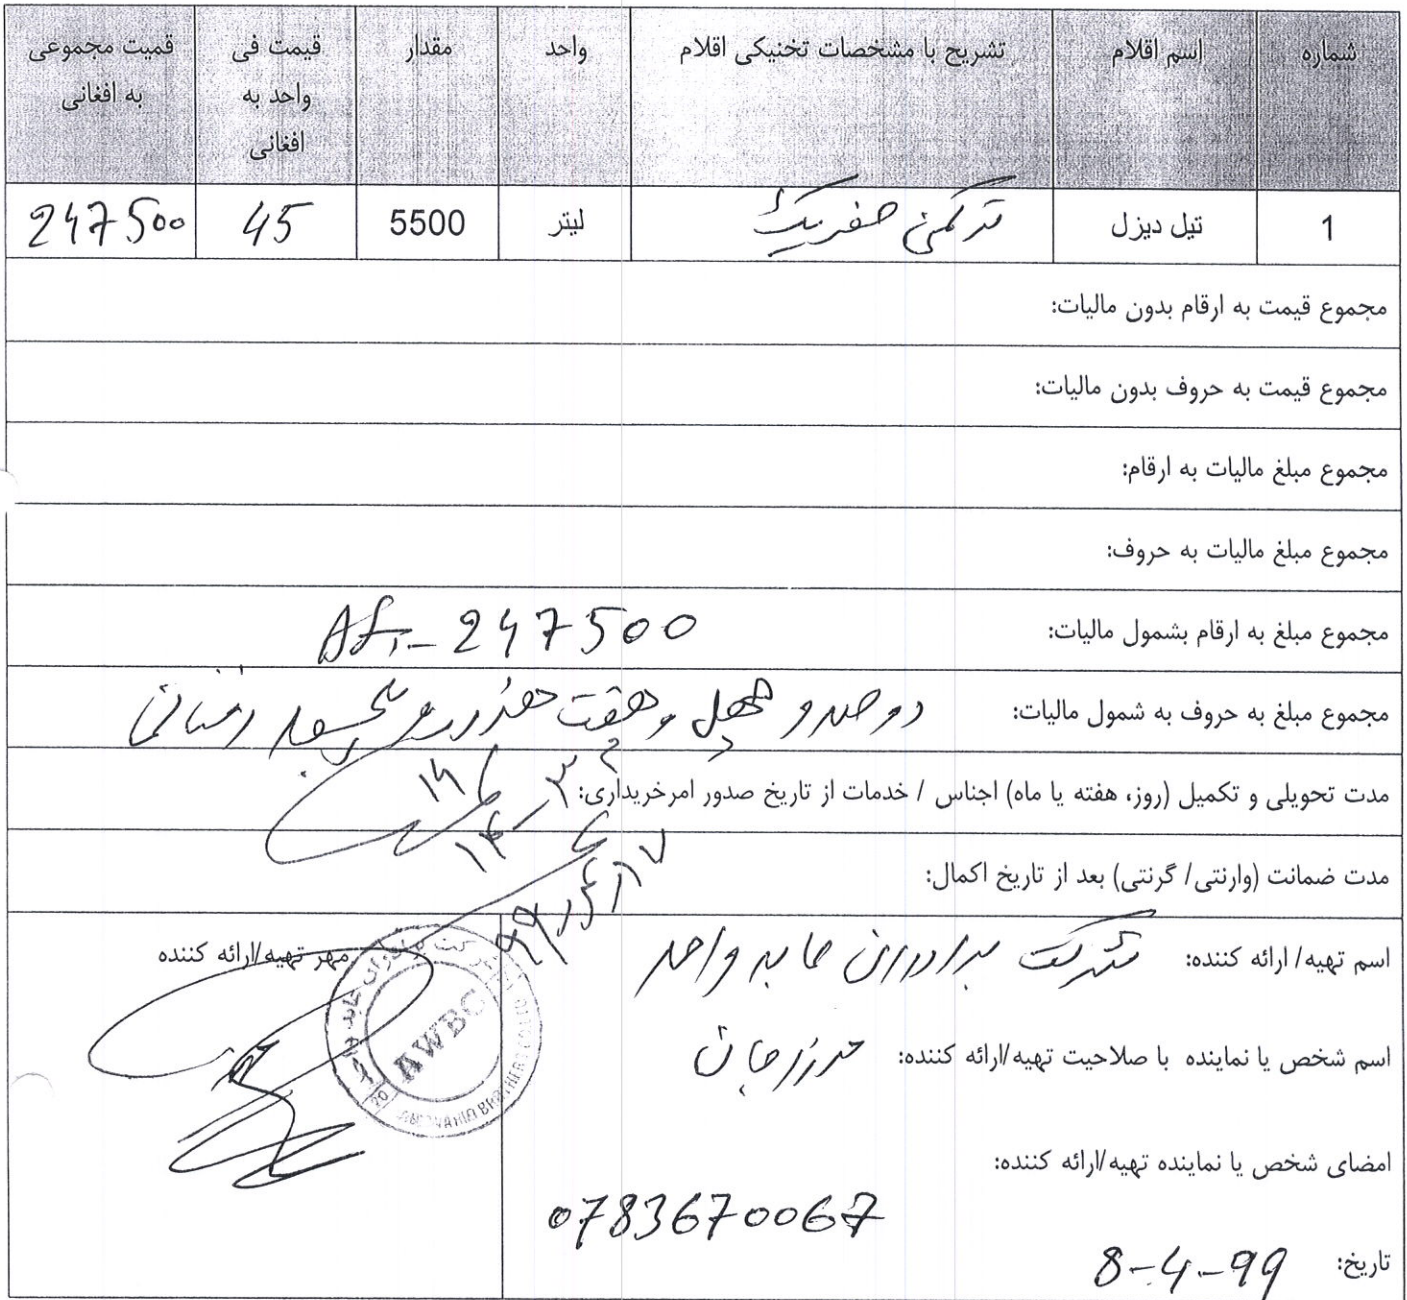 شماره	اسم اقلام	تشریح با مشخصات تخنیکی اقلام	واحد	مقدار	قیمت فی واحد به افغانی	قمیت مجموعی به افغانی
1	تیل دیزل	ترکمنی صفر یک	لیتر	5500	45	247500
مجموع قیمت به ارقام بدون مالیات:
مجموع قیمت به حروف بدون مالیات:
مجموع مبلغ مالیات به ارقام:
مجموع مبلغ مالیات به حروف:
مجموع مبلغ به ارقام بشمول مالیات: Af,- 247500
مجموع مبلغ به حروف به شمول مالیات: دو صد و چهل و هفت هزار و پنجصد افغانی
مدت تحویلی و تکمیل (روز، هفته یا ماه) اجناس / خدمات از تاریخ صدور امرخریداری:
مدت ضمانت (وارنتی/ گرنتی) بعد از تاریخ اکمال:
اسم تهیه/ ارائه کننده: شرکت برادران عابد واحد
مهر تهیه/ارائه کننده
AWBC
اسم شخص یا نماینده با صلاحیت تهیه/ارائه کننده:
امضای شخص یا نماینده تهیه/ارائه کننده:
0783670067
تاریخ: 8-4-99